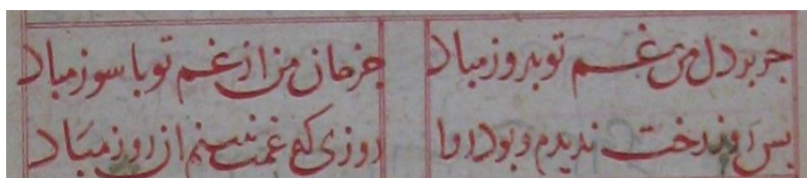 جز بر دل من غم تو پیروز مباد جز جان من از غم تو با سوز مباد
بس روز رخت ندیدم و بود روا روزی که غمت نبینم آن روز مباد